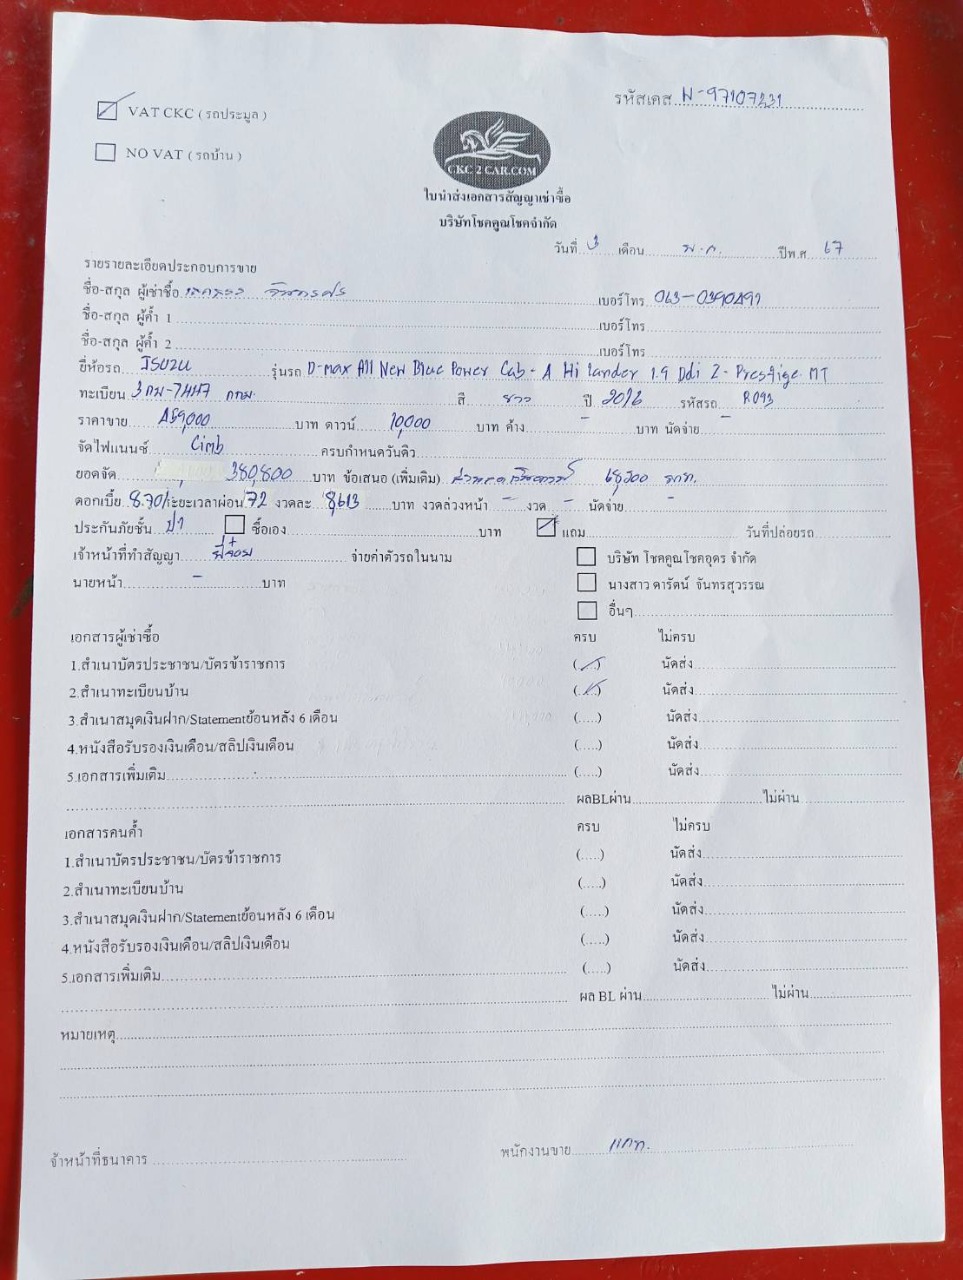 รหัสเคส N-97107231
VAT CKC ( รถประมูล )
NO VAT ( รถบ้าน )
CKC 2 CAR.COM
ใบนำส่งเอกสารสัญญาเช่าซื้อ
บริษัทโชคคูณโชคจำกัด
วันที่ 3 เดือน พ.ค. ปีพ.ศ. 67
รายรายละเอียดประกอบการขาย
ชื่อ-สกุล ผู้เช่าซื้อ
เบอร์โทร 063-0390891
ชื่อ-สกุล ผู้ค้ำ 1 เบอร์โทร
ชื่อ-สกุล ผู้ค้ำ 2 เบอร์โทร
ยี่ห้อรถ ISUZU รุ่นรถ D-max All New Blue Power Cab-A Hi lander 1.9 Ddi Z-Prestige MT
ทะเบียน 3กม-7447 กทม. สี ขาว ปี 2016 รหัสรถ R093
ราคาขาย 459000 บาท ดาวน์ 10,000 บาท ค้าง - บาท นัดจ่าย -
จัดไฟแนนซ์ Cimb ครบกำหนดวันดิว
ยอดจัด 380,800 บาท ข้อเสนอ (เพิ่มเติม) 68,200 บาท.
ดอกเบี้ย 8.70/ ระยะเวลาผ่อน 72 งวดละ 8613 บาท งวดล่วงหน้า - งวด - นัดจ่าย
ประกันภัยชั้น ป1 ซื้อเอง บาท แถม วันที่ปล่อยรถ
เจ้าหน้าที่ทำสัญญา จ่ายค่าตัวรถในนาม บริษัท โชคคูณโชคอุดร จำกัด
นายหน้า - บาท นางสาว ดารัตน์ จันทรสุวรรณ
อื่นๆ
เอกสารผู้เช่าซื้อ ครบ ไม่ครบ
1.สำเนาบัตรประชาชน/บัตรข้าราชการ (../..) นัดส่ง
2.สำเนาทะเบียนบ้าน (../..) นัดส่ง
3.สำเนาสมุดเงินฝาก/Statementย้อนหลัง 6 เดือน (.....) นัดส่ง
4.หนังสือรับรองเงินเดือน/สลิปเงินเดือน (.....) นัดส่ง
5.เอกสารเพิ่มเติม (.....) นัดส่ง
ผลBLผ่าน ไม่ผ่าน
เอกสารคนค้ำ ครบ ไม่ครบ
1.สำเนาบัตรประชาชน/บัตรข้าราชการ (.....) นัดส่ง
2.สำเนาทะเบียนบ้าน (.....) นัดส่ง
3.สำเนาสมุดเงินฝาก/Statementย้อนหลัง 6 เดือน (.....) นัดส่ง
4.หนังสือรับรองเงินเดือน/สลิปเงินเดือน (.....) นัดส่ง
5.เอกสารเพิ่มเติม (.....) นัดส่ง
ผล BL ผ่าน ไม่ผ่าน
หมายเหตุ
จ้าหน้าที่ธนาคาร พนักงานขาย